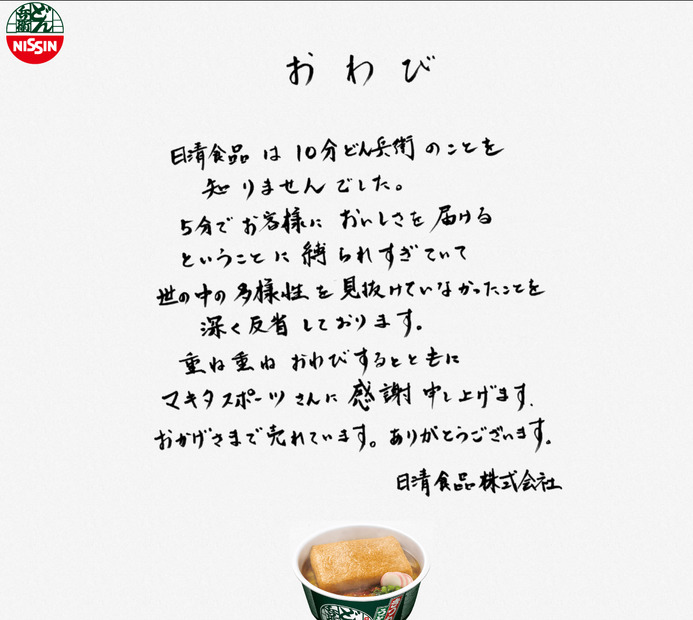 どん兵衛
NISSIN
おわび
日清食品は10分どん兵衛のことを
知りませんでした。
5分でお客様においしさを届ける
ということに縛られすぎていて
世の中の多様性を見抜けていなかったことを
深く反省しております。
重ね重ねおわびするとともに
マキタスポーツさんに感謝申し上げます。
おかげさまで売れています。ありがとうございます。
日清食品株式会社